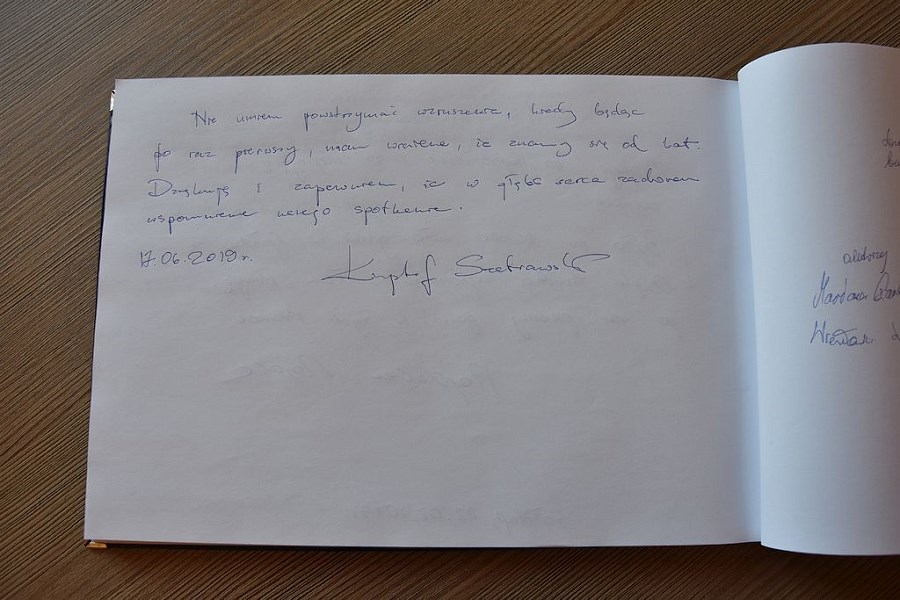 Nie umiem powstrzymać wzruszenia, kiedy będąc
po raz pierwszy, mam wrażenie, że znamy się od lat.
Dziękuję i zapewniam, że w głębi serca zachowam
wspomnienie naszego spotkania.
17.06.2019 r.
Krzysztof
autorzy